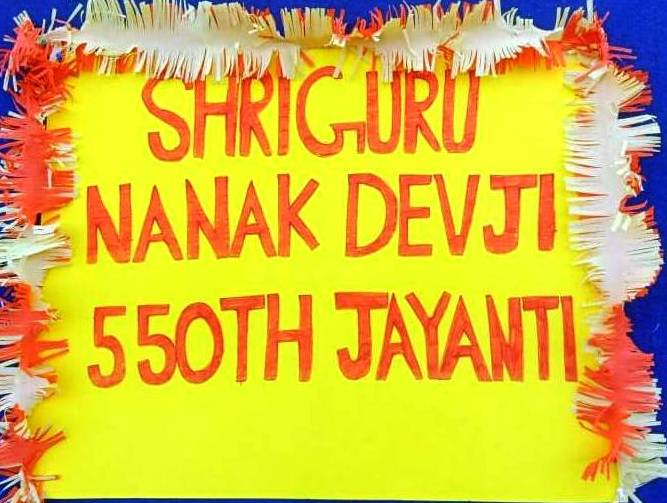 SHRI GURU
NANAK DEVJI
550TH JAYANTI